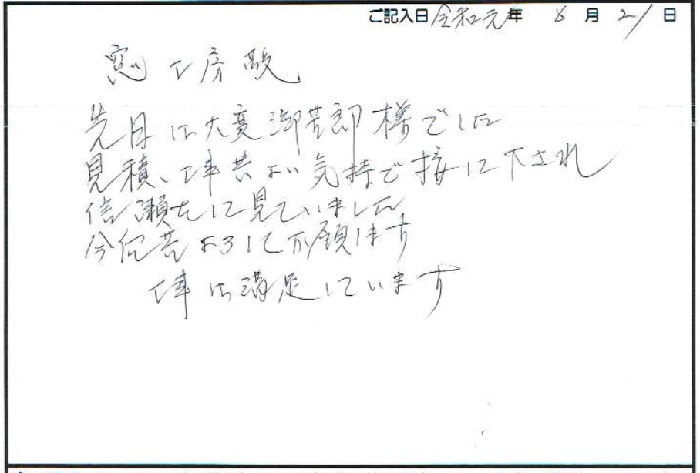 ご記入日 令和元年 6月21日
窓工房殿
先日は大変御苦郎様でした
見積、工事共よい気持で接して下され
信瀬をして見ていました
今何共よろしくお願します
工事は満足しています